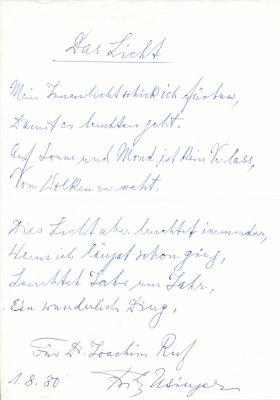 Das Licht
Mein Innenlicht schick ich fürbas,
Damit es leuchten geht.
Auf Sonne und Mond ist kein Verlass,
Von Wolken verweht.
Dies Licht aber leuchtet immerdar,
Wenn ich längst schon ging,
Leuchtet Jahr um Jahr,
Ein wunderlich Ding.
Für Dr. Joachim Ruf
1.8.80 Fritz Usinger